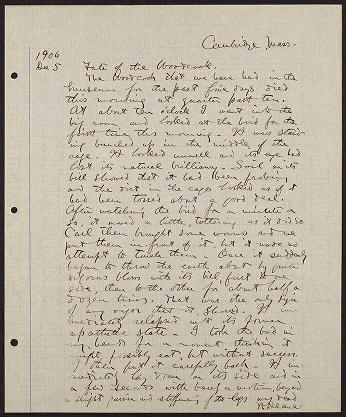 Cambridge Mass.
1906
Dec 5
Fate of the Woodcock.
The Woodcock that we have had in the
museum for the past five days died
this morning at quarter past ten.
At about ten o'clock I went into the
big room and looked at the bird for the
first time this morning. It was stand-
ing bunched up in the middle of the
cage. It looked unwell and its eye had
lost its natural brilliancy. Soil on its
bill showed that it had been probing,
and the dirt in the cage looked as if it
had been tossed about a good deal.
After watching the bird for a minute or
so, it moved a little, tottering as it did so
Carl then brought some worms and we
put them in front of it, but it made no
attempt to touch them. Once it suddenly
began to throw the earth about by quick
vigorous blows with its bill, first to one
side, then to the other, for about half a
dozen times. That was the only sign
of any vigor that it showed. It im-
mediately relapsed into its former
apathetic state. I took the bird in
my hands for a moment thinking it
might possibly eat, but without success.
I then put it carefully back. It im-
mediately lay down on its side and in
a few seconds with barely a motion, beyond
a slight quiver and stiffening of the legs was dead